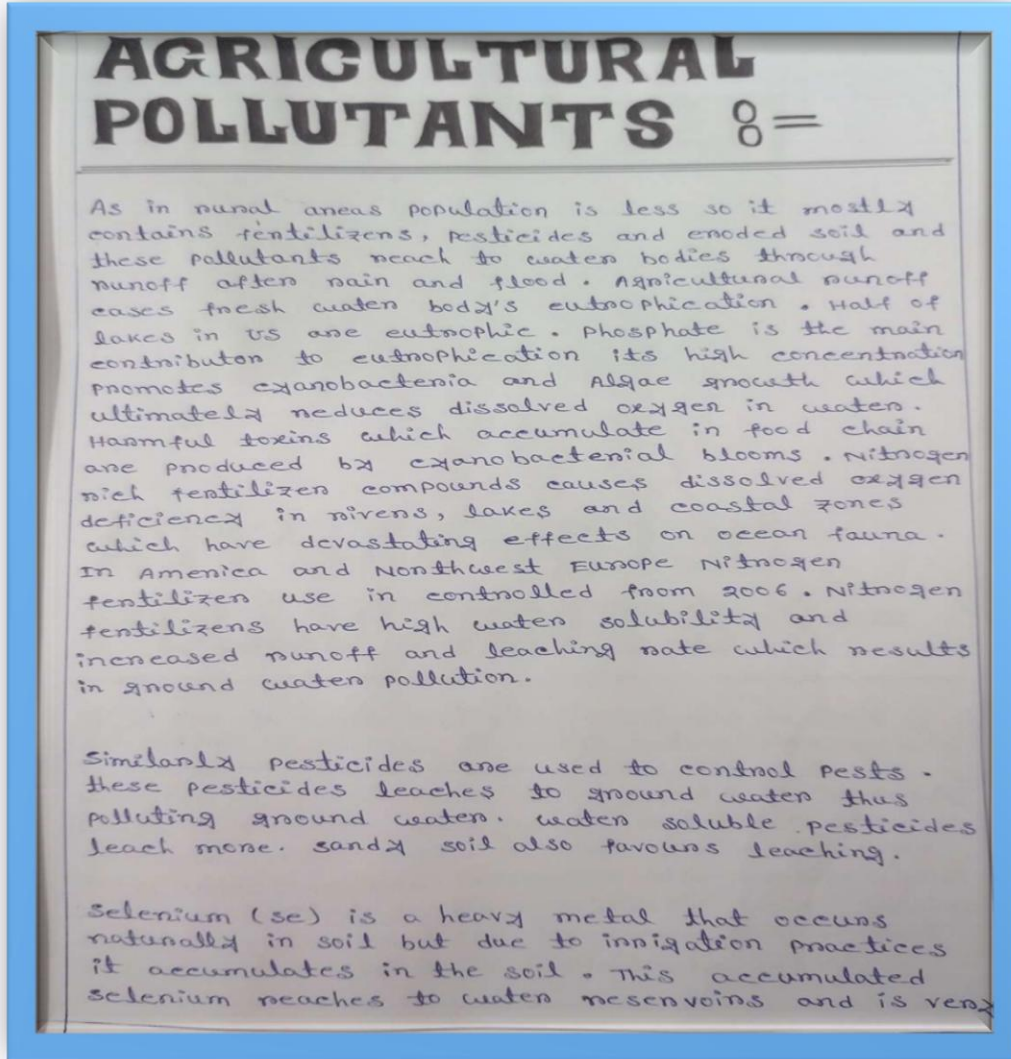 AGRICULTURAL
POLLUTANTS :=
As in rural areas population is less so it mostly
contains fertilizers, pesticides and eroded soil and
these pollutants reach to water bodies through
runoff after rain and flood. Agricultural runoff
cases fresh water body's eutrophication. Half of
lakes in US are eutrophic. Phosphate is the main
contributor to eutrophication its high concentration
promotes cyanobacteria and Algae growth which
ultimately reduces dissolved oxygen in water.
Harmful toxins which accumulate in food chain
are produced by cyanobacterial blooms. Nitrogen
rich fertilizer compounds causes dissolved oxygen
deficiency in rivers, lakes and coastal zones
which have devastating effects on ocean fauna.
In America and Northwest Europe Nitrogen
fertilizer use in controlled from 2006. Nitrogen
fertilizers have high water solubility and
increased runoff and leaching rate which results
in ground water pollution.
Similarly pesticides are used to control pests.
these pesticides leaches to ground water thus
polluting ground water. water soluble pesticides
leach more. sandy soil also favours leaching.
Selenium (se) is a heavy metal that occurs
naturally in soil but due to irrigation practices
it accumulates in the soil. This accumulated
selenium reaches to water reservoirs and is very